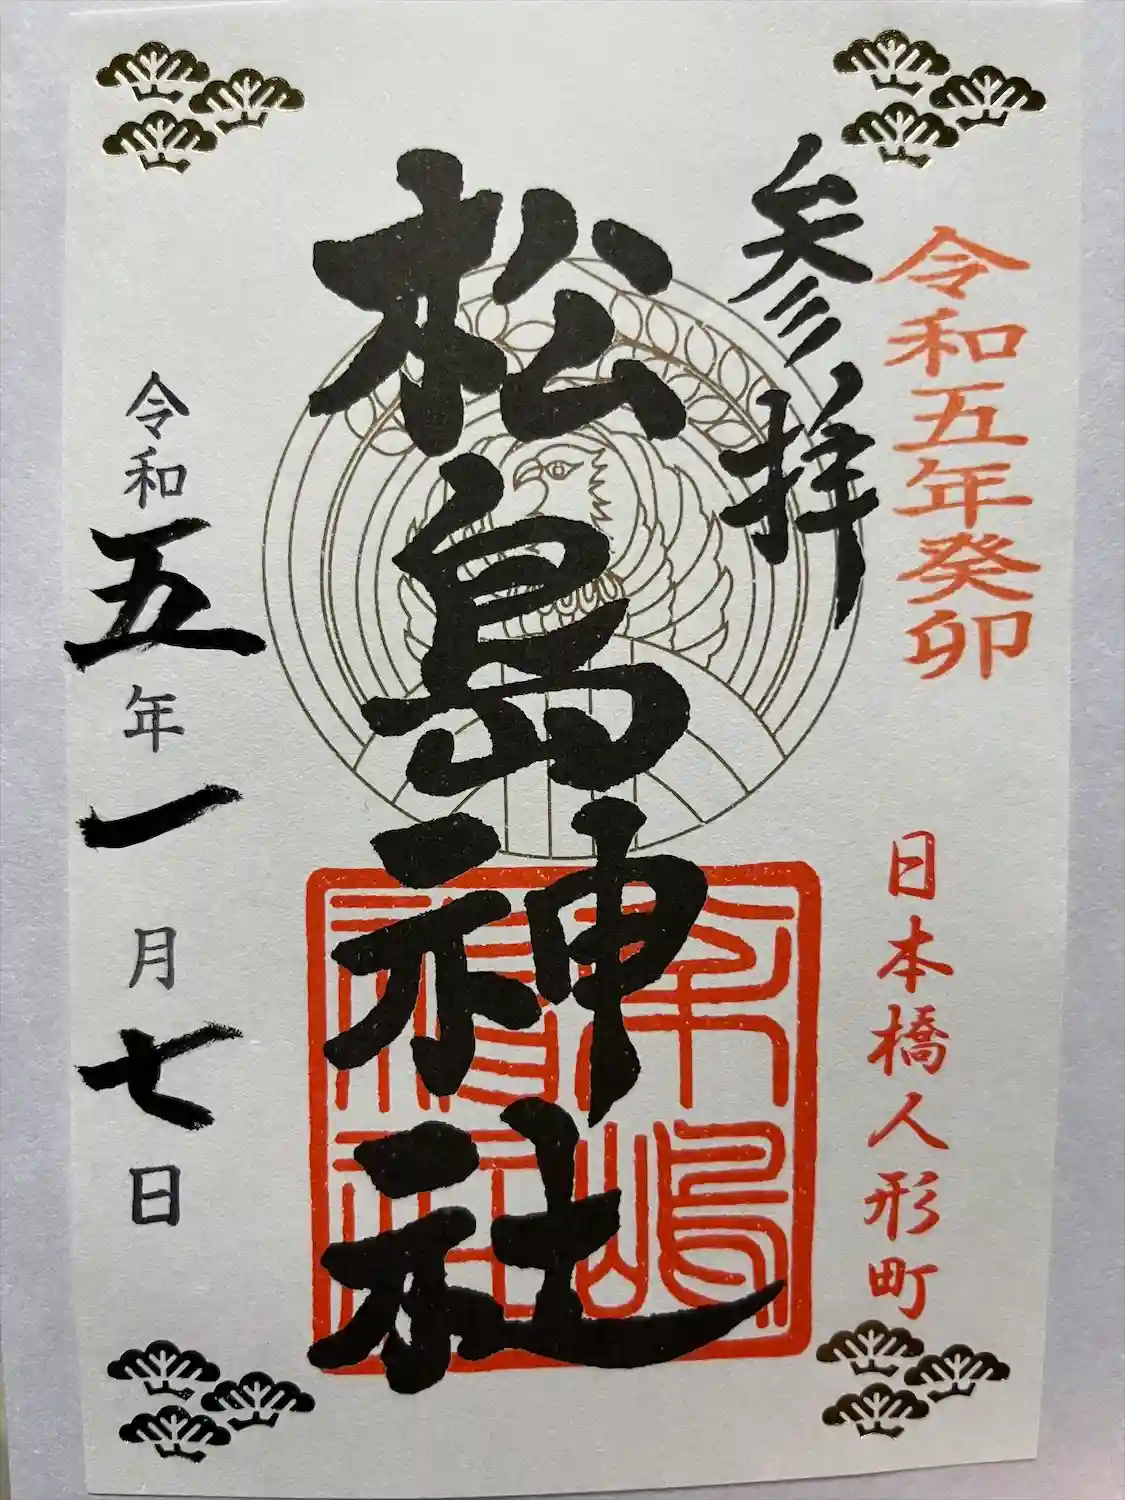 令和五年癸卯
日本橋人形町
参拝
松島神社
松嶋神社
令和五年一月七日